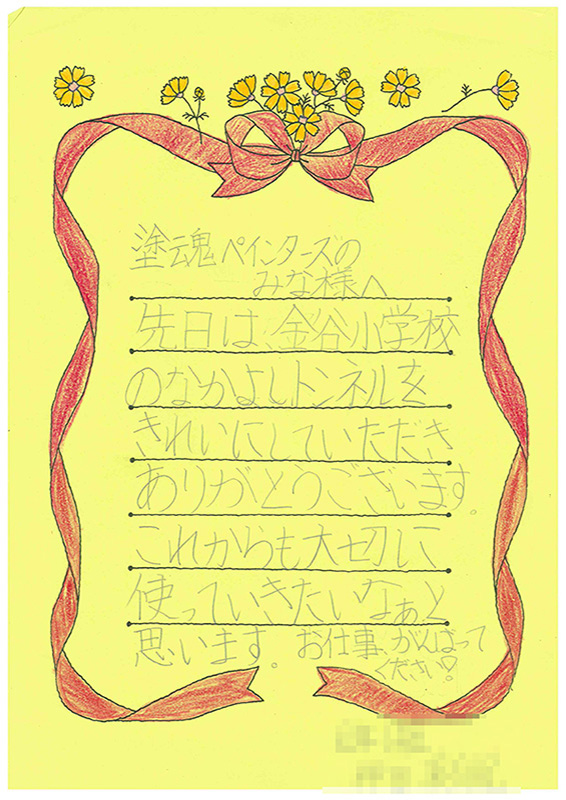 塗魂ペインターズの
みな様へ
先日は、金谷小学校
のなかよしトンネルを
きれいにしていただき
ありがとうございます。
これからも大切に
使っていきたいなぁと
思います。お仕事、がんばって
ください!